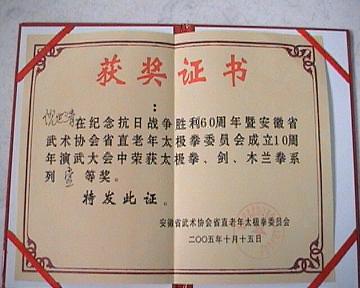 获奖证书
：
在纪念抗日战争胜利60周年暨安徽省
武术协会省直老年太极拳委员会成立10周
年演武大会中荣获太极拳、剑、木兰拳系
列 等奖。
特发此证。
安徽省武术协会省直老年太极拳委员会
二00五年十月十五日